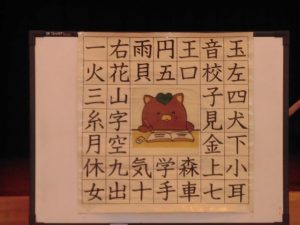 一右雨円王音玉
火花貝五口校左
三山子四
糸字見犬
月空金下
休九気学森上小
女出十手車七耳